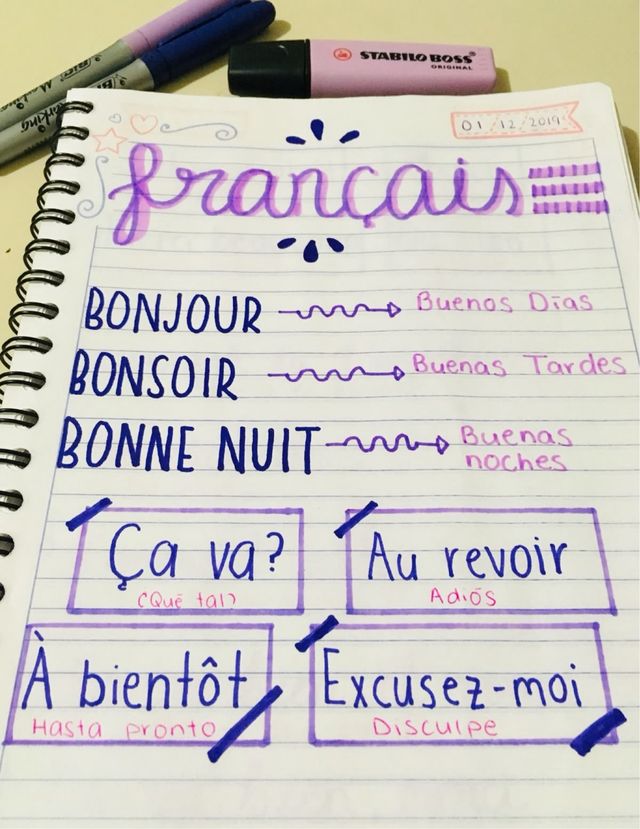 STABILO BOSS
ORIGINAL
01/12/2019
français
BONJOUR Buenos Días
BONSOIR Buenas Tardes
BONNE NUIT Buenas
noches
Ça va? Au revoir
(Qué tal?) Adiós
À bientôt Excusez-moi
Hasta pronto Disculpe